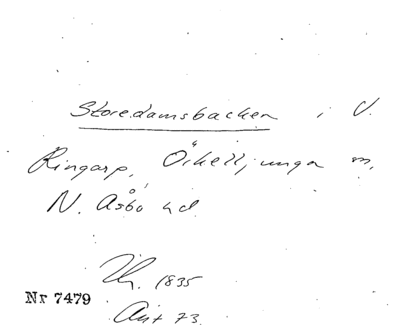 Storedamsbacken i V.
Ringarp, Örkelljunga m,
N. Åsbo hd
1835
Nr 7479
Ant 73.